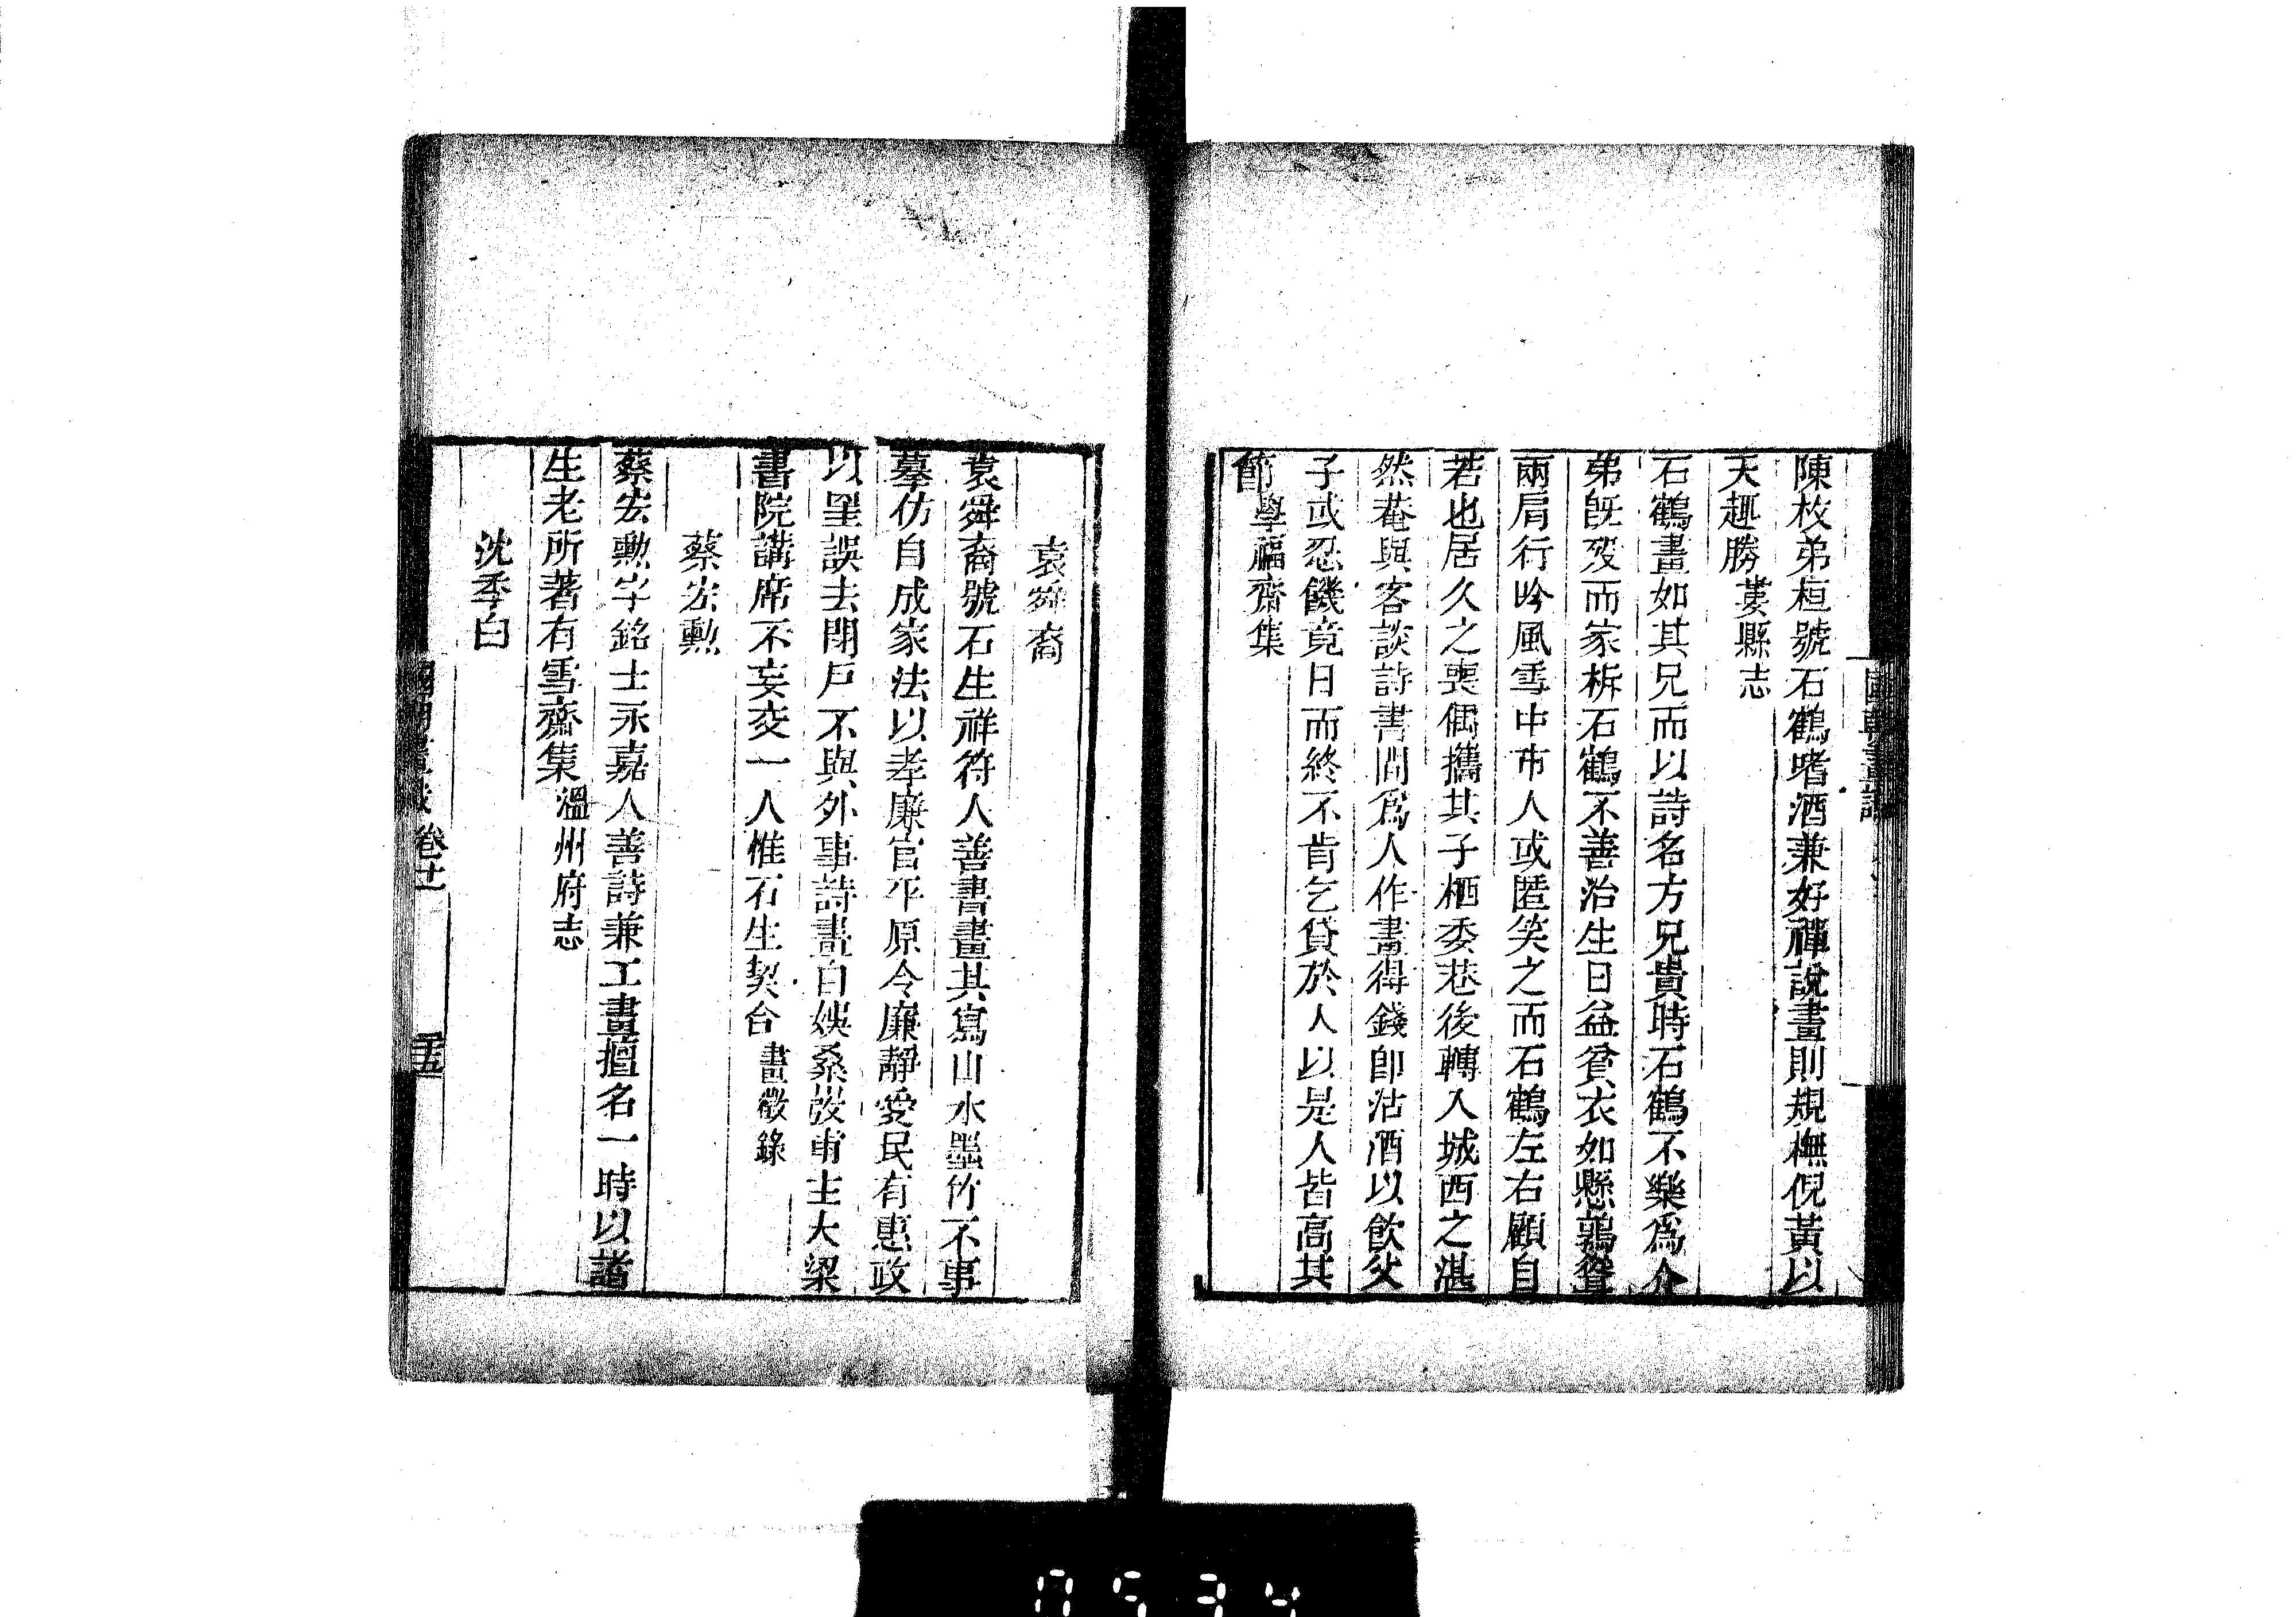 陳枚弟桓號石鶴嗜酒兼好禪說畫則規橅倪黃以
天趣勝婁縣志
石鶴畫如其兄而以詩名方兄貴時石鶴不樂爲介
弟旣歿而家柝石鶴不善治生日益貧衣如懸鶉聳
兩肩行吟風雪中市人或匿笑之而石鶴左右顧自
若也居久之喪偶攜其子栖委巷後轉入城西之湛
然菴與客談詩書間爲人作畫得錢卽沽酒以飲父
子或忍饑竟日而終不肯乞貸於人以是人皆高其
節學福齋集
袁舜裔
袁舜裔號石生祥符人善書畫其寫山水墨竹不事
摹仿自成家法以孝廉官平原令廉靜愛民有惠政
以罣誤去閉戶不與外事詩畫自娛桑弢甫主大梁
書院講席不妄交一人惟石生契合畫徵錄
蔡宏勳
蔡宏勳字銘士永嘉人善詩兼工畫擅名一時以諸
生老所著有雪齋集溫州府志
沈季白
國朝畫識卷十一
二十五
0534